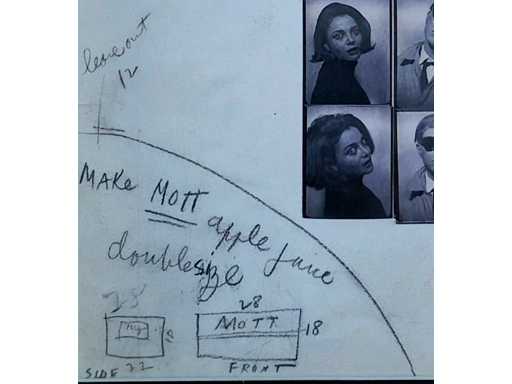 leave out
12
MAKE MOTT
apple juice
double size
28
28
MOTT
18
SIDE 22
FRONT